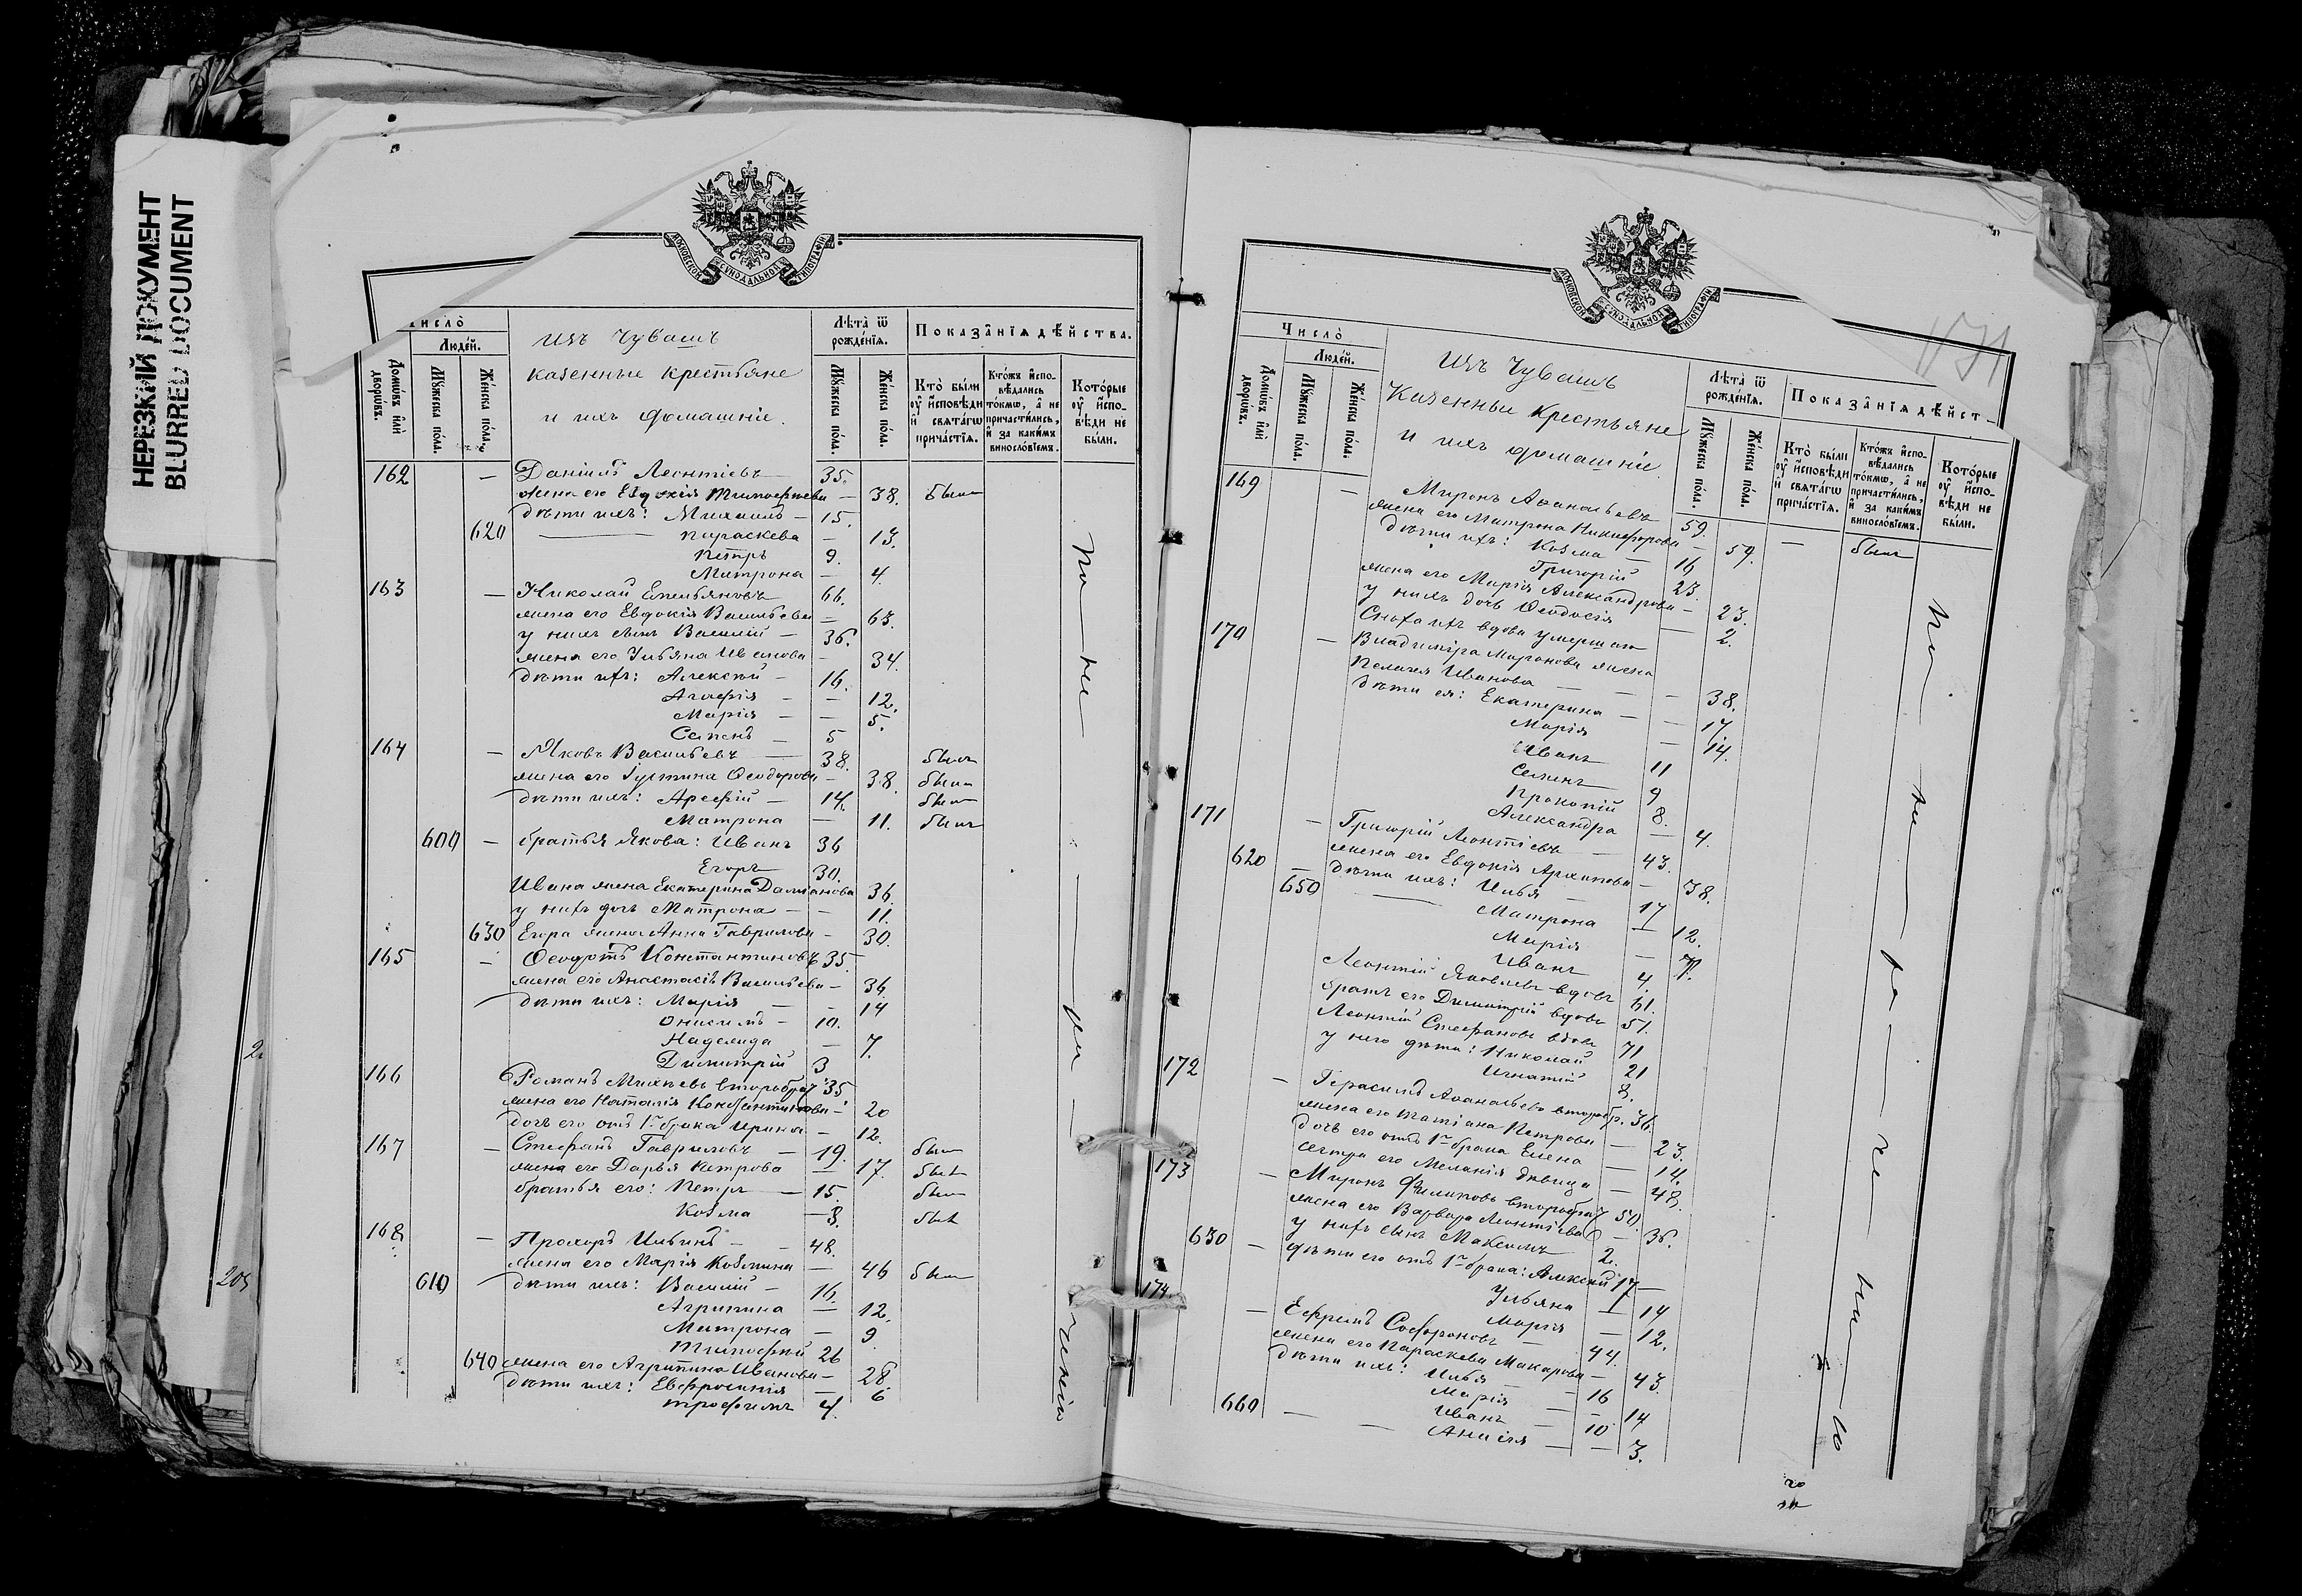 НЕРЕЗКИЙ ДОКУМЕНТ
BLURRED DOCUMENT
205
МОСКОВСКОЙ СѴНОДАЛЬНОЙ ТИПОГРАФІИ
Число̀
Люде́й.
Домѡ́въ и҆лѝ дворѡ́въ.
Мꙋ́жеска по́ла.
Же́нска по́ла.
изъ Чувашъ
казенные крестьяне
и ихъ домашніе.
Лѣ́та ѿ рожде́нїѧ.
Мꙋ́жеска по́ла.
Же́нска по́ла.
Показа́нїѧ дѣ́йства.
Кто̀ бы́ли ᲂу҆ и҆́сповѣди и҆ свѧта́гѡ прича́стїѧ.
Кто́жъ и҆спо-вѣ́дались то́кмѡ, а҆ не причасти́лись, и҆ за каки́мъ винословїемъ.
Кото́рые ᲂу҆ и҆́спо-вѣди не бы́ли.
162 — Даніилъ Леонтіевъ 35.
жена его Евдокія Тимофеева — 38. были
дѣти ихъ: Михаилъ — 15.
620 Параскева — 13.
Петръ 9.
Матрона — 4.
163 — Николай Емельяновъ 66.
жена его Евдокія Васильева — 63.
у нихъ сынъ Василій — 36.
жена его Ульяна Иванова — 34.
дѣти ихъ: Алексѣй — 16.
Агафія — — 12.
Марія — — 5.
Семенъ — 5
164 — Яковъ Васильевъ — 38. былъ
жена его Іустина Ѳеодорова — 38. была
дѣти ихъ: Арсеній — 14. былъ
Матрона — 11. была
600 — братья Якова: Иванъ 36
Егоръ 30.
Ивана жена Екатерина Даміанова 36.
у нихъ дочь Матрона — — 11.
630 Егора жена Анна Гаврилова — 30.
165 — Ѳеодотъ Константиновъ 35.
жена его Анастасія Васильева — 36.
дѣти ихъ: Марія — — 14
Онисимъ — 10.
Надежда — 7.
Димитрій 3
166 Романъ Михѣевъ второбрач. 35
жена его Наталія Константинова — 20
дочь его отъ 1го брака Ирина — 12.
167 — Стефанъ Гавриловъ — 19. былъ
жена его Дарья Петрова — 17. была
братья его: Петръ — 15. былъ
Козма — 8. былъ
168 — Прохоръ Ильинъ — 48.
жена его Марія Козмина — 46 была
610 дѣти ихъ: Василій — 16.
Агрипина — 12.
Матрона — 9.
Тимофей 26
640 жена его Агрипина Иванова — 28
дѣти ихъ: Евфросинія — 6
Трофимъ 4.
по — не — ра — ченію
171
МОСКОВСКОЙ СѴНОДАЛЬНОЙ ТИПОГРАФІИ
Число̀
Люде́й.
Домѡ́въ и҆лѝ дворѡ́въ.
Мꙋ́жеска по́ла.
Же́нска по́ла.
Изъ Чувашъ
Казенные крестьяне
и ихъ домашніе
Лѣ́та ѿ рожде́нїѧ.
Мꙋ́жеска по́ла.
Же́нска по́ла.
Показа́нїѧ дѣ́йст
Кто̀ бы́ли ᲂу҆ и҆́сповѣди и҆ свѧта́гѡ прича́стїѧ.
Кто́жъ и҆спо-вѣ́дались то́кмѡ, а҆ не причасти́лись, и҆ за каки́мъ винословїемъ.
Кото́рые ᲂу҆ и҆́спо-вѣди не бы́ли.
169 — Миронъ Аѳанасьевъ 59.
жена его Матрона Никифорова — 59. — былъ
дѣти ихъ: Козма — 16
Григорій 23.
жена его Марія Александрова — 23.
у нихъ дочь Ѳеодосія — 2.
170 — Сноха ихъ вдова умершаго
Владиміра Миронова жена
Пелагея Иванова — — 38.
дѣти ея: Екатерина — — 17.
Марія — 14.
Иванъ 11
Семенъ 9
Прокопій 8.
Александра — 4.
171 — Григорій Леонтіевъ — 43.
620 жена его Евдокія Архипова — 38.
650 дѣти ихъ: Илья — 17
Матрона — 12.
Марія — 7.
Иванъ 4.
Леонтій Яковлевъ вдовъ 61.
братъ его Димитрій вдовъ 51.
Леонтій Стефановъ вдовъ 71
у него дѣти: Николай 21
Игнатій 8.
172 — Герасимъ Аѳанасьевъ второбр. 36.
жена его Татіана Петрова — 23.
дочь его отъ 1го брака Елена — 14.
сестра его Меланія дѣвица — 48.
173 — Миронъ Филиповъ второбрач. 50.
жена его Варвара Леонтіева — 36.
630 у нихъ сынъ Максимъ 2.
— дѣти его отъ 1го брака: Алексѣй 17 —
Ульяна — 14
Марія — 12.
174. — Ефремъ Софроновъ — 44.
жена его Параскева Макарова — 43.
дѣти ихъ: Илья — 16
Марія — — 14
660 Иванъ — 10
— Анисія — — 3.
по — не — ра — че — ні — ю